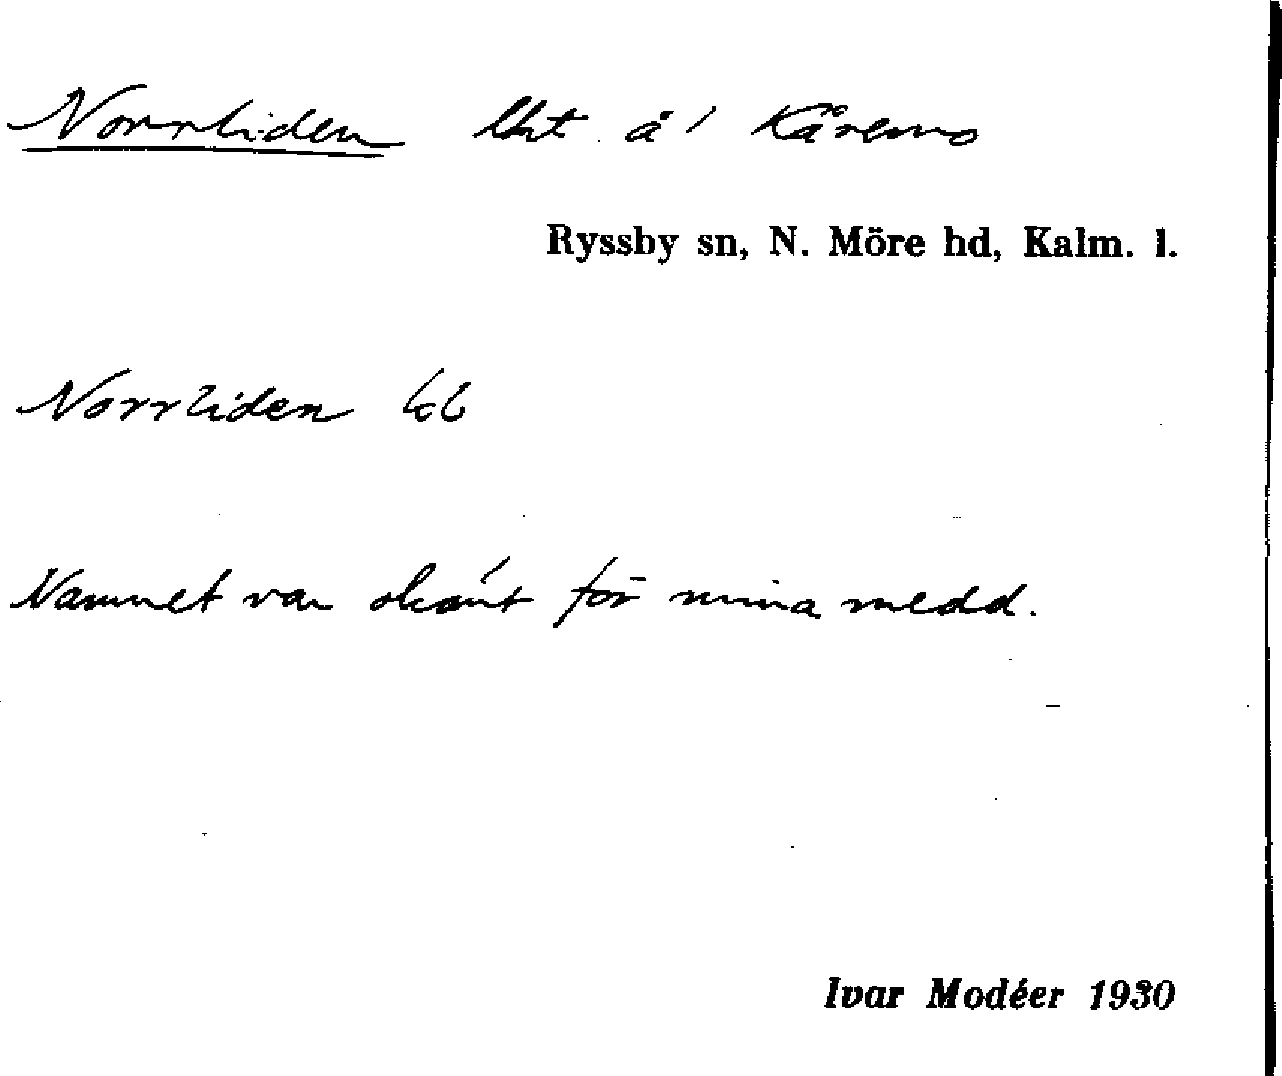 Norrliden lht å Kåremo
Ryssby sn, N. Möre hd, Kalm. l.
Norrliden kb
Namnet var okänt för mina medd.
Ivar Modéer 1930